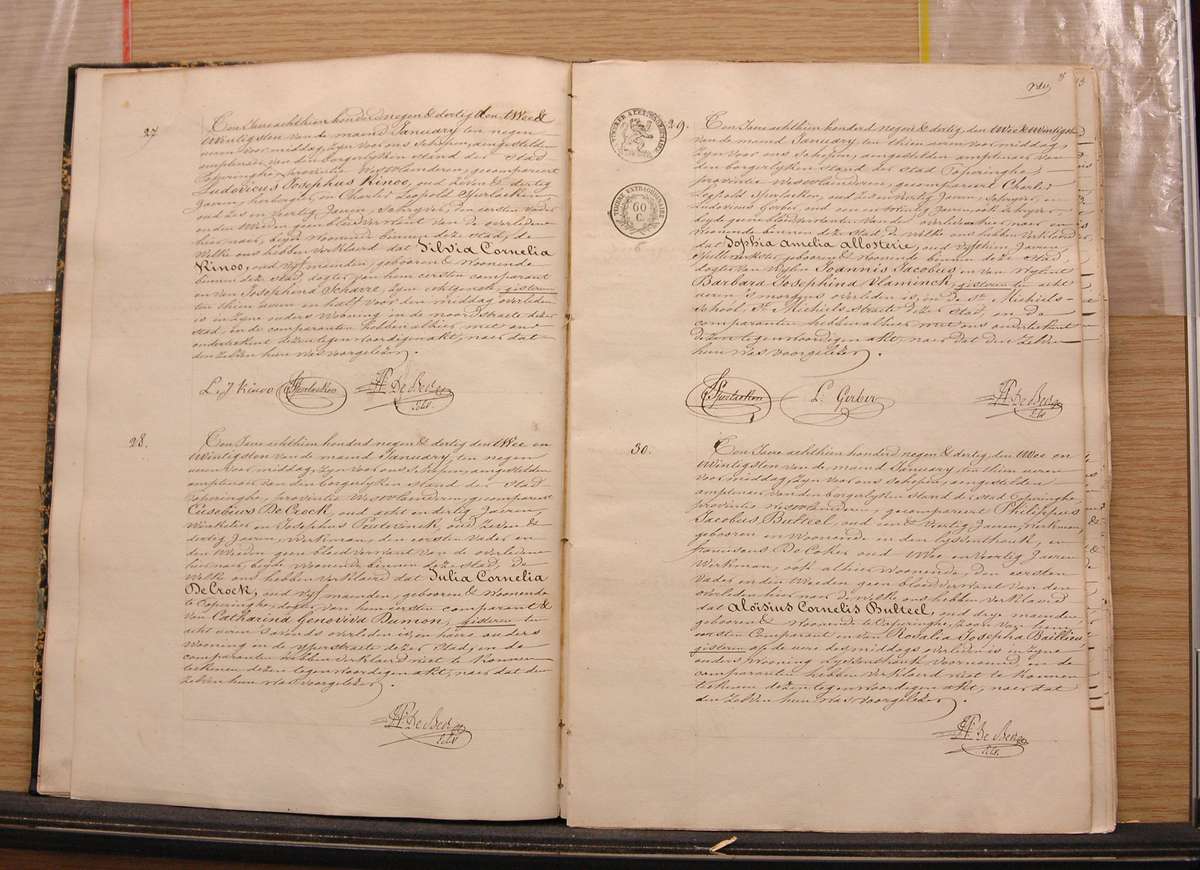 27.
Ten Jare achthien honderd negen & dertig den twee &
twintigsten van de maend January ten negen
uren voor middag, zyn voor ons Schepen, aengestelden
amptenaer van den borgerlyken stand der Stad
Poperinghe, provintie Westvlanderen, gecompareert
Ludovicus Josephus Kinoo, oud zeven & dertig
Jaren, herbergier, en Charles Leopold Spertaelken
oud zes en veertig Jaren, Schryver, den eersten Vader
en den tweeden geen bloedverwant van de overledene
hier naer, beyde woonende binnen deze stad, de
welke ons hebben verklaerd dat Silvia Cornelia
Kinoo, oud vyf maenden, gebooren & woonende
binnen deze Stad, dogter van hem eersten comparant
en van Josephina Scharre, zyne echtgenote, gisteren
ten thien uren en half voor den middag overleden
is in zyne ouders wooning in de noordstraete dezer
stad, en de comparanten hebben alhier met ons
onderteekent dezen tegenwoordigen akt, naer dat
den zelven hun was voorgelezen.
L. J Kinoo
H. De Beir
28.
Ten Jare achthien honderd negen & dertig den twee en
twintigsten van de maend January, ten negen
uren voor middag, zyn voor ons Schepen, aengestelden
amptenaer van den borgerlyken stand der Stad
Poperinghe, provintie Westvlanderen, gecompareert
Eusebius De Crock, oud acht en dertig Jaren,
Winkelier en Josephus Pertezinck, oud zeven &
dertig Jaren, Werkman, den eersten vader en
den tweeden geen bloedverwant van de overledene
hier naer, beyde woonende binnen deze Stad, de
welke ons hebben verklaerd dat Julia Cornelia
De Crock, oud vyf maenden, gebooren & woonende
te Poperinghe, dogter van hem eersten comparant &
van Catharina Genoviva Dumon, gisteren ten
acht uren s'avonds overleden is in haere ouders
wooning in de yperstraete dezer Stad, en de
comparanten hebben verklaerd niet te konnen
teekenen dezen tegenwoordigen akt, naer dat den
zelven hun was voorgelezen.
29.
TIMBRE EXTRAORDINAIRE
60
C.
Ten Jare achthien honderd negen & dertig den twee & twintigsten
van de maend January, ten thien uren voor middag,
zyn voor ons Schepen, aengestelden amptenaer van
den borgerlyken stand der stad Poperinghe,
provintie Westvlanderen, gecompareert Charles
Leopold Spertaelken, oud zes en veertig Jaren, Schryver, en
Ludovicus Gerber, oud een en veertig Jaren
beyde geen bloedverwanten van de overledene hier naer en
woonende binnen deze Stad, de welke ons hebben verklaerd
dat Sophia Amelia Allosterie, oud vyfthien Jaren,
geboren & woonende binnen deze Stad,
dogter van wylen Joannis Jacobus en van wylent
Barbara Josephina Vlaminck, gisteren ten acht
uren is morgens overleden is in de St. Michiels
School, St. Michiels straete dezer Stad, en de
comparanten hebben alhier met ons onderteekent
dezen tegenwoordigen akt, naer dat den zelven
hun was voorgelezen.
L. Gerber
30.
Ten Jare achthien honderd negen & dertig den twee en
twintigsten van de maend January ten thien uren
voor middag, zyn voor ons Schepen, aengestelden
amptenaer van den borgerlyken stand der stad Poperinghe
provintie Westvlanderen, gecompareert Philippus
Jacobus Bulteel, oud een & veertig Jaren, werkman,
gebooren en woonende in den Lyssenthouk, en
Franciscus De Coker oud twee en veertig Jaren
Werkman, ook alhier woonende, den eersten
Vader en den tweeden geen bloedverwant van den
overleden hier naer de welke ons hebben verklaerd
dat Aloisius Cornelis Bulteel, oud drye maenden
gebooren & woonende te Poperinghe, zoon van hem
eersten Comparant en van Rosalia Josepha Baillieu
gisteren op de ure des middags overleden is in zyne
ouders wooning Lyssenthouk voornoemd en de
comparanten hebben verklaerd niet te konnen
teekenen dezen tegenwoordigen akt, naer dat
den zelven hun was voorgelezen.